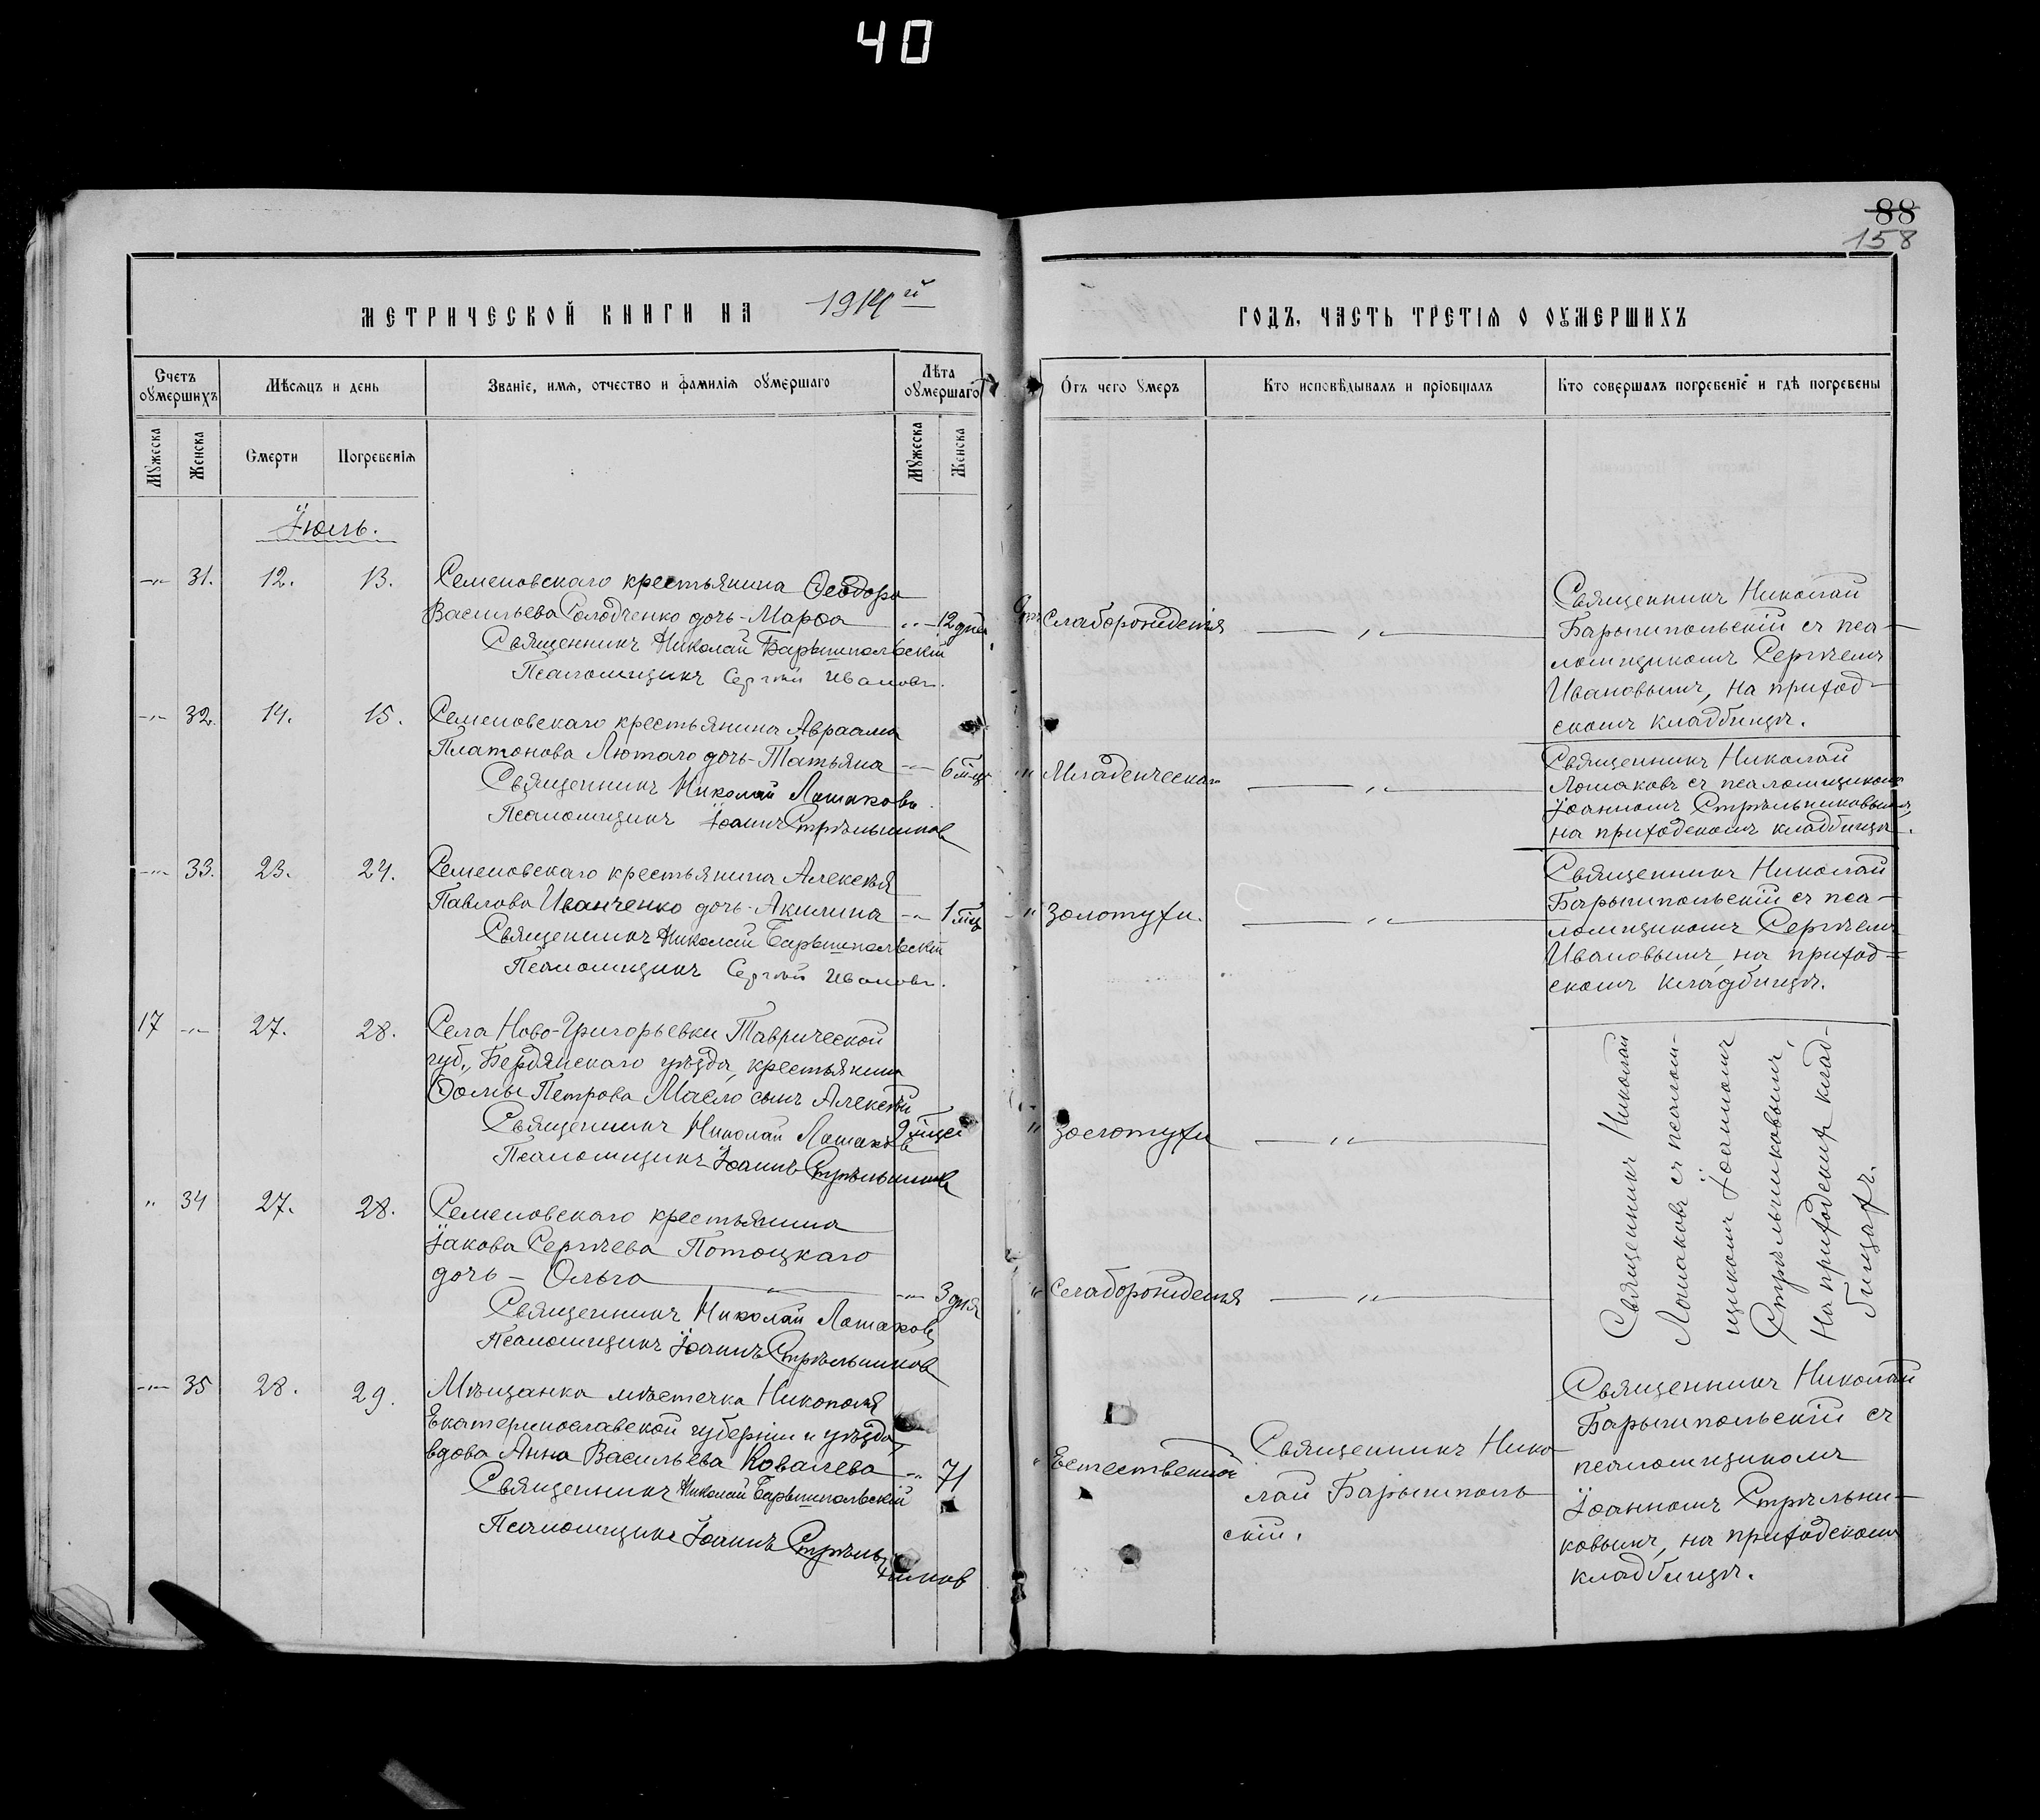 40
88
158
МЕТРИЧЕСКОЙ КНИГИ НА 1914й
ГОДЪ, ЧАСТЬ ТРЕТІЯ О ОУМЕРШИХЪ
Счетъ оумершихъ
Мѣсяцъ и день
Званіе, имя, отчество и фамилія оумершаго
Лѣта оумершаго
Отъ чего умеръ
Кто исповѣдывалъ и пріобщалъ
Кто совершалъ погребеніе и гдѣ погребены
Мужеска
Женска
Смерти
Погребенія
Мужеска
Женска
Іюль.
-"- 31. 12. 13.
Семеновскаго крестьянина Ѳеодора
Васильева Солодченко дочь - Марѳа -"- 12 дней
Священникъ Николай Барышпольскій
Псаломщикъ Сергѣй Ивановъ.
Отъ слаборожденія -"-
Священникъ Николай
Барышпольскій съ пса-
ломщикомъ Сергѣемъ
Ивановымъ, на приход-
скомъ кладбищѣ.
-"- 32. 14. 15.
Семеновскаго крестьянина Авраама
Платонова Лютаго дочь - Татьяна -"- 6 мѣц.
Священникъ Николай Лошаковъ
Псаломщикъ Іоаннъ Стрѣльниковъ
" Младенческая -"-
Священникъ Николай
Лошаковъ съ псаломщикомъ
Іоанномъ Стрѣльниковымъ,
на приходскомъ кладбищѣ.
-"- 33. 23. 24.
Семеновскаго крестьянина Алексѣя
Павлова Иванченко дочь - Акилина -"- 1 мѣц.
Священникъ Николай Барышпольскій
Псаломщикъ Сергѣй Ивановъ.
" Золотухи. -"-
Священникъ Николай
Барышпольскій съ пса-
ломщикомъ Сергѣемъ
Ивановымъ, на приход-
скомъ кладбищѣ.
17 -"- 27. 28.
Села Ново-Григорьевки Таврической
губ., Бердянскаго уѣзда, крестьянина
Ѳомы Петрова Масло сынъ Алексѣй
Священникъ Николай Лошаковъ
Псаломщикъ Іоаннъ Стрѣльниковъ
" Золотухи -"-
Священникъ Николай
Лошаковъ съ псалом-
щикомъ Іоанномъ
Стрѣльниковымъ,
на приходскихъ клад-
бищахъ.
" 34 27. 28.
Семеновскаго крестьянина
Іакова Сергѣева Потоцкаго
дочь - Ольга -"- 3 дня
Священникъ Николай Лошаковъ
Псаломщикъ Іоаннъ Стрѣльниковъ
" Слаборожденія -"-
-"- 35 28. 29.
Мѣщанка мѣстечка Никополя
Екатеринославской губерніи и уѣзда
вдова Анна Васильева Ковалева -"- 71
Священникъ Николай Барышпольскій
Псаломщикъ Іоаннъ Стрѣль-
никовъ
" Естественной
Священникъ Нико-
лай Барышполь-
скій.
Священникъ Николай
Барышпольскій съ
псаломщикомъ
Іоанномъ Стрѣльни-
ковымъ, на приходскомъ
кладбищѣ.